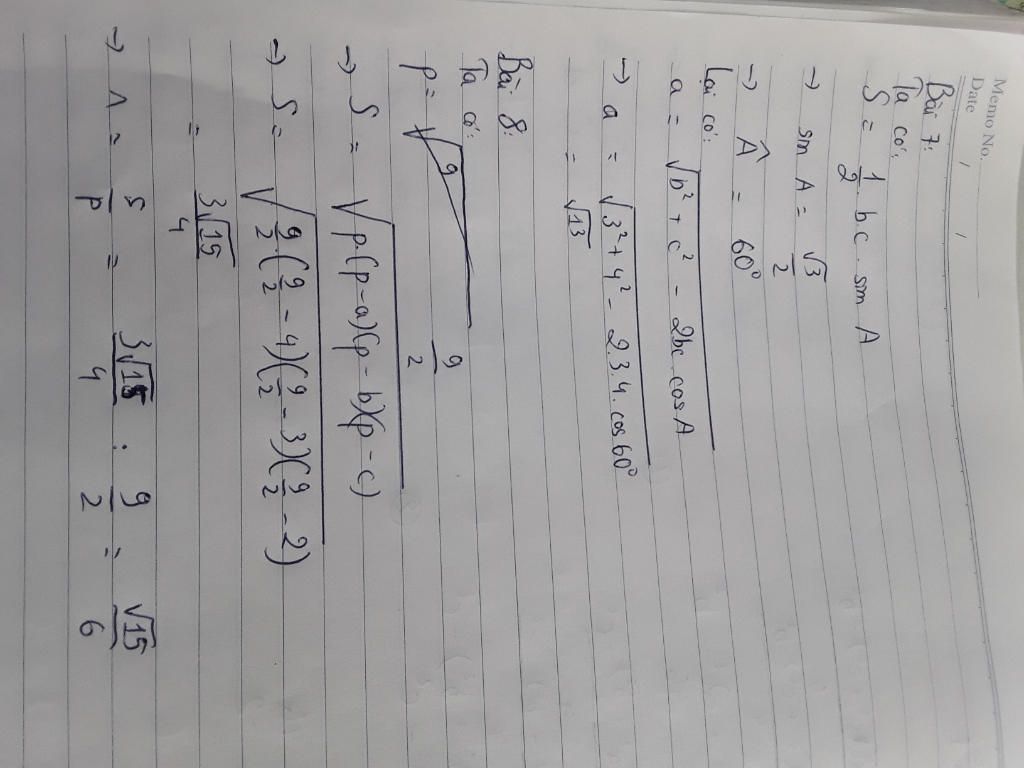 Memo No.
Date / /
Bài 7:
Ta có:
S = \frac{1}{2} b.c . sin A
→ sin A = \frac{√3}{2}
→ Â = 60°
Lại có:
a = √(b² + c² - 2bc.cosA)
→ a = √(3² + 4² - 2.3.4.cos60°)
= √13
Bài 8:
Ta có:
p = \frac{9}{2}
→ S = √(p(p-a)(p-b)(p-c))
→ S = √(\frac{9}{2}(\frac{9}{2} - 4)(\frac{9}{2} - 3)(\frac{9}{2} - 2))
= \frac{3√15}{4}
→ r = \frac{S}{p} = \frac{3√15}{4} : \frac{9}{2} = \frac{√15}{6}